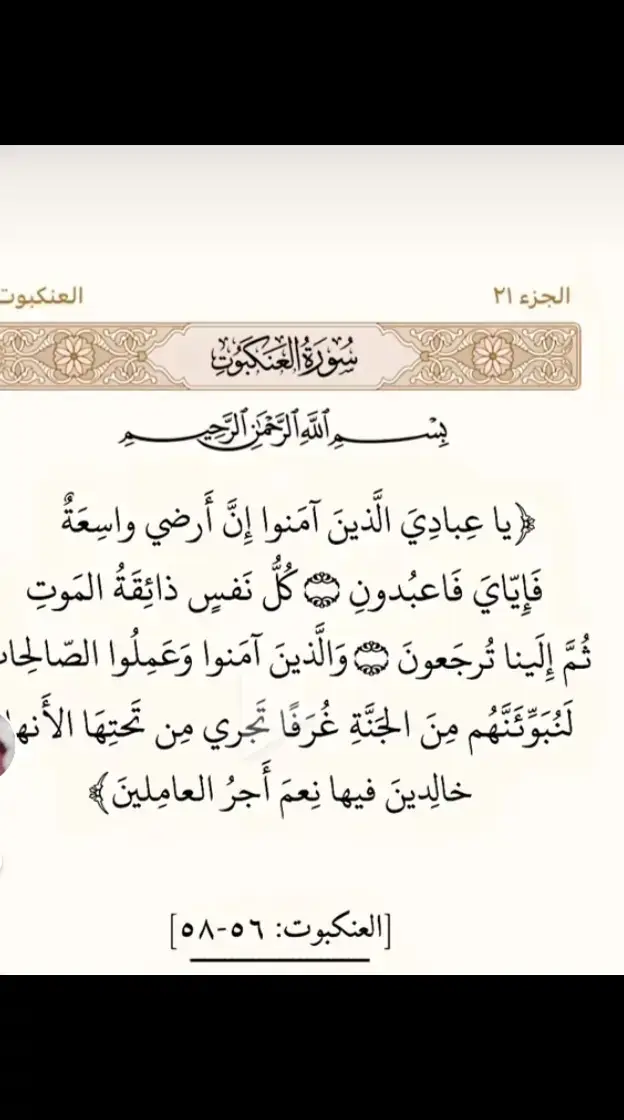 الجزء ٢١
العنكبوت
سُورَةُ العَنكَبُوتِ
بِسْمِ ٱللَّهِ ٱلرَّحْمَٰنِ ٱلرَّحِيمِ
﴿يا عِبادِيَ الَّذينَ آمَنوا إِنَّ أَرضي واسِعَةٌ
فَإِيّايَ فَاعبُدونِ ۝ كُلُّ نَفسٍ ذائِقَةُ المَوتِ
ثُمَّ إِلَينا تُرجَعونَ ۝ وَالَّذينَ آمَنوا وَعَمِلُوا الصّالِحا
لَنُبَوِّئَنَّهُم مِنَ الجَنَّةِ غُرَفًا تَجري مِن تَحتِهَا الأَنها
خالِدينَ فيها نِعمَ أَجرُ العامِلينَ﴾
[العنكبوت: ٥٦-٥٨]